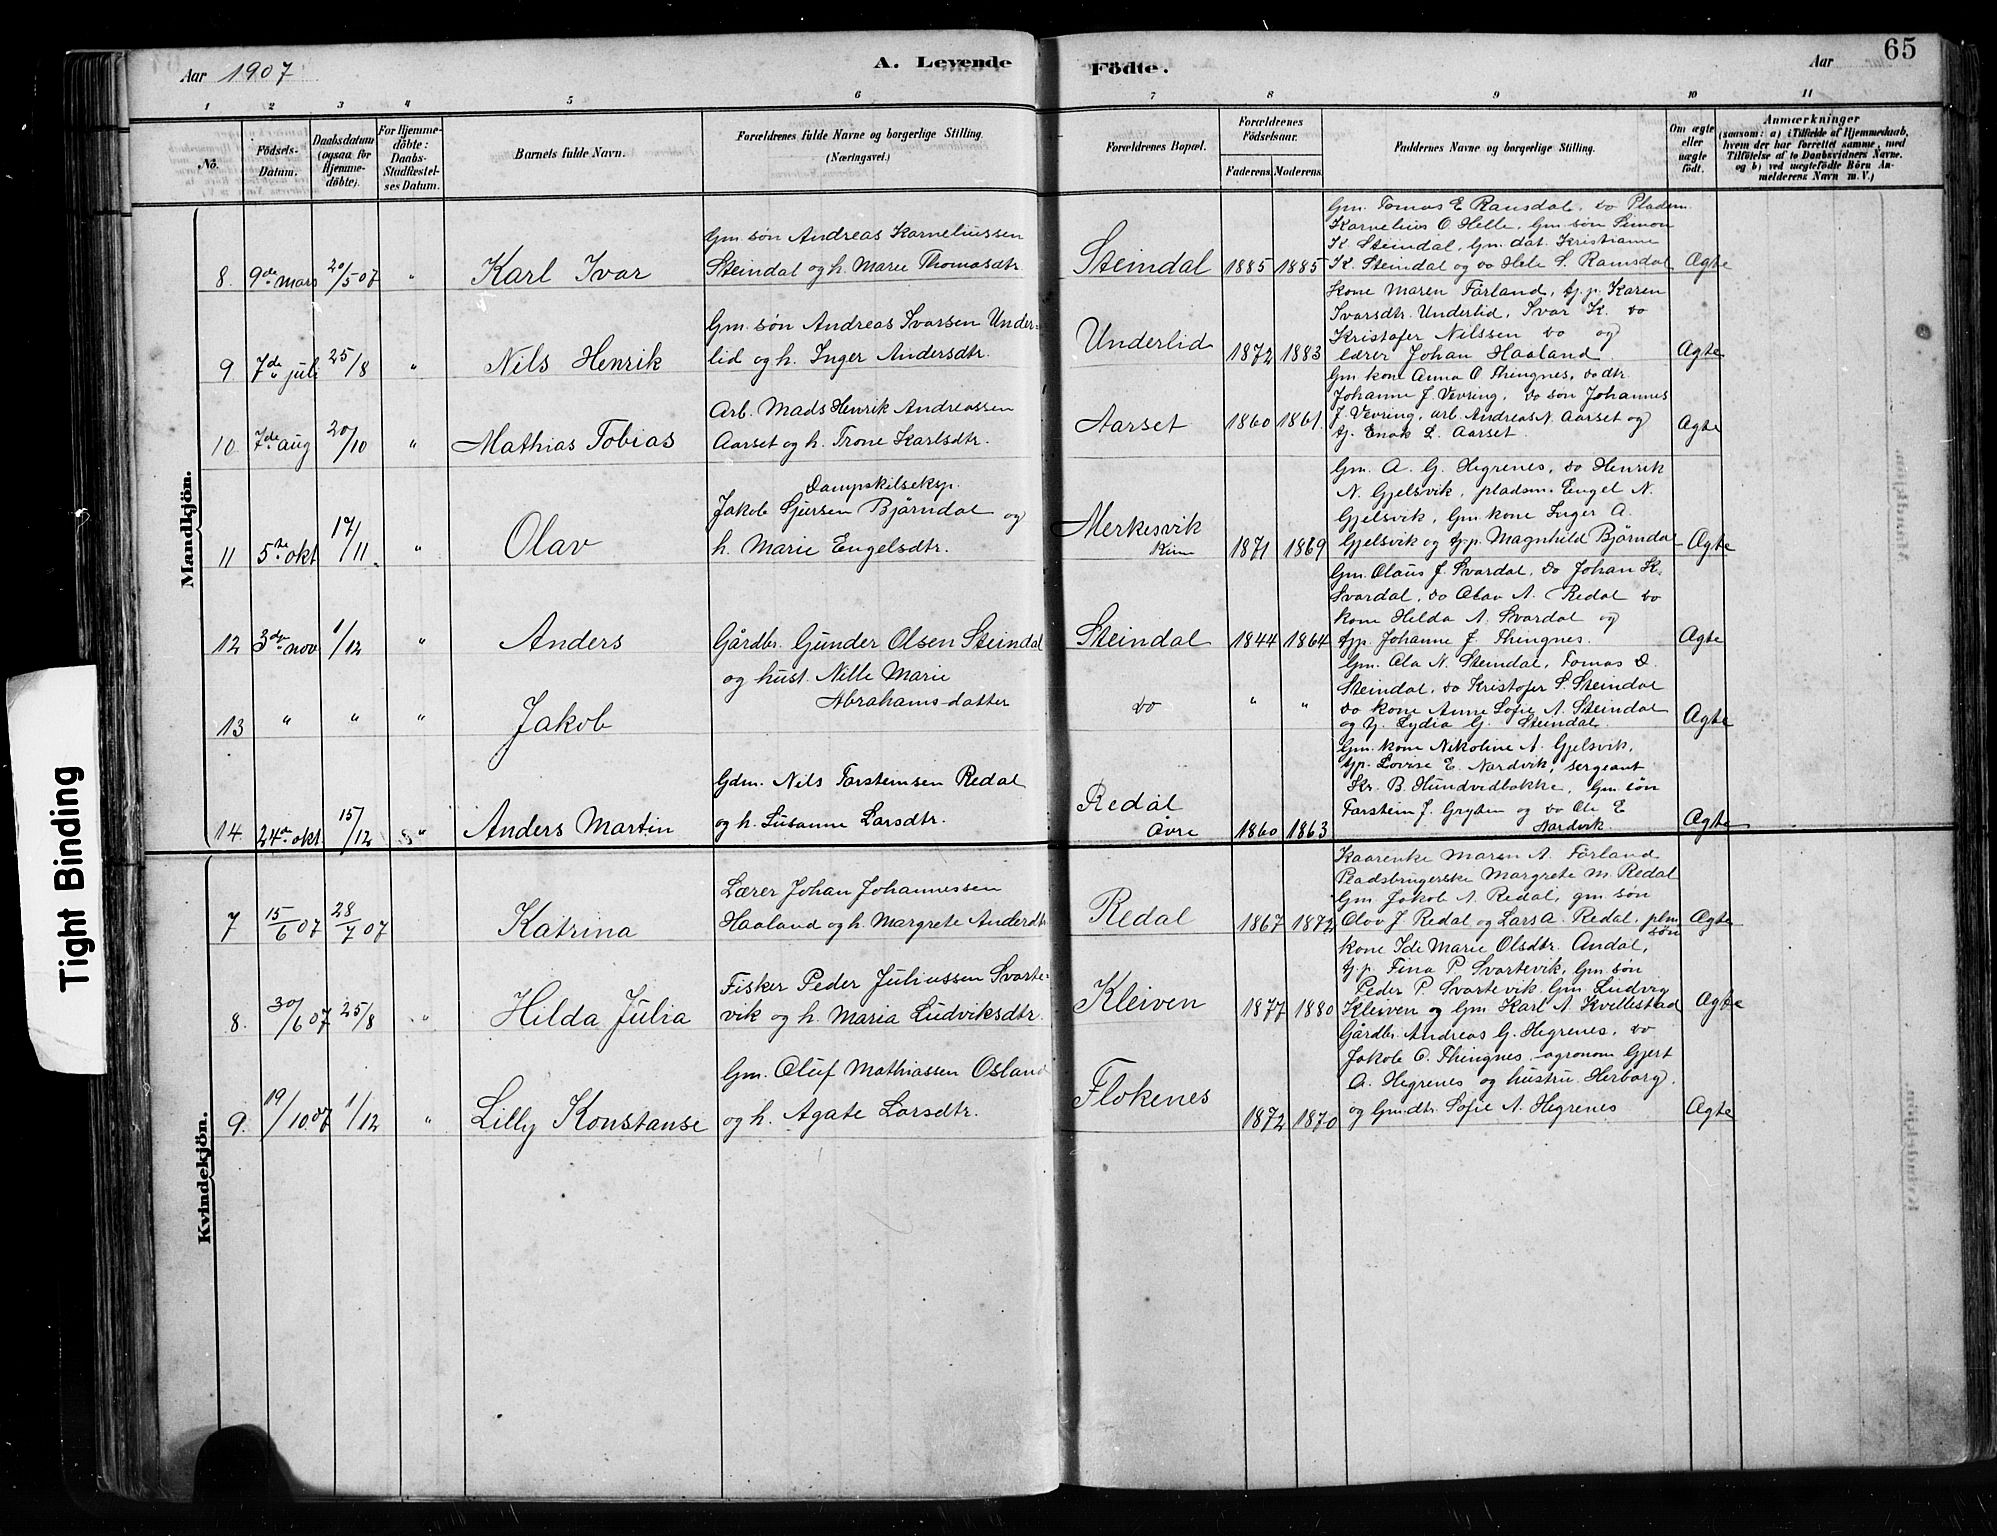 65
Aar 1907
A. Levende Födte.
Aar
1 2 3 4 5 6 7 8 9 10 11
No.
Födsels-Datum.
Daabsdatum (ogsaa for Hjemmedöbte).
For Hjemmedöbte: Daabs-Stadfæstelses Datum.
Barnets fulde Navn.
Forældrenes fulde Navne og borgerlige Stilling.
(Næringsvei.)
Forældrenes Bopæl.
Forældrenes Födselsaar.
Faderens. Moderens.
Faddernes Navne og borgerlige Stilling.
Om ægte eller uægte født.
Anmærkninger
(saasom: a) i Tilfælde af Hjemmedaab,
hvem der har forrettet samme, med
Tilföielse af to Daabsvidners Navne.
og b) ved uægtefödte Börn Anmelderens Navn m. V.)
Mandkjön.
8. 9de mars 20/5 07 " Karl Ivar
Gm. søn Andreas Korneliussen
Steindal og h. Marie Thomasdtr
Steindal 1885 1885
Gm. Tomas E Ramsdal, do Pladsm.
Kornelius O. Helle, Gm. søn Simon
K. Steindal, Gm. dat. Kristianne
K. Steindal og do Hele S. Ramsdal
Ægte
9. 7de juli 25/8 " Nils Henrik
Gm. søn Andreas Ivarsen Under-
lid og h. Inger Andersdtr.
Underlid 1872 1883
Kone Maren Førland, tj. p. Karen
Ivarsdtr. Underlid, Ivar K. do
Kristofer Nilssen do og
lærer Johan Haaland.
Ægte
10. 7de aug 20/10 " Mathias Tobias
Arb. Mads Henrik Andreassen
Aarset og h. Trone Karlsdtr.
Aarset 1860 1861
Gm. kone Anna O. Thingnes, do dtr.
Johanne J. Vevring, do søn Johannes
J. Vevring, arb. Andreas N. Aarset og
tj. Enok L. Aarset.
Ægte
11 5te okt 17/11 " Olav
Dampskibseksp.
Jakob Sjursen Bjørndal og
h. Marie Engelsdtr.
Merkesvik 1871 1869
Gm. A. G. Hegrenes, do Henrik
N. Gjelsvik, pladsm. Engel N.
Gjelsvik, Gm. kone Inger A.
Gjelsvik og tj. p. Magnhild Bjørndal
Ægte
12 3die nov 1/12 " Anders
Gårdbr. Gunder Olsen Steindal
og hust. Nille Marie
Abrahams-datter
Steindal 1844 1864
Gm. Olaus J. Svardal, do Johan K.
Svardal, do Olav A. Redal do
kone Helda A. Svardal og
tjp. Johanne J. Thingnes.
Ægte
13 " " " Jakob
do " "
Gm. Ola N. Steindal, Tomas D.
Steindal, do Kristofer S. Steindal
do kone Anne Sofie A. Steindal
og tj. Lydia G. Steindal.
Ægte
14. 24de okt 15/12 " Anders Martin
Gdm. Nils Torsteinsen Redal
og h. Susanne Larsdtr.
Redal Øvre 1860 1863
Gm. kone Nikoline A. Gjelsvik,
tjp. Lovise E. Nordvik, sergeant
Kr. B. Hundvidbakke, Gm. søn
Torstein J. Gryten og do Ole E
Nordvik.
Ægte
Kvindekjön.
7 15/6 07 28/7 07 Katrina
Lærer Johan Johannessen
Haaland og h. Margrete Andersdtr
Redal 1867 1872
Kaarenke Maren A. Førland
Pladsbrugerske Margrete M. Redal
Gm. Jakob A. Redal, gm. søn
Olav J. Redal og Lars A. Redal, plm.
søn
Ægte
8. 30/6 07 25/8 " Hilda Julia
Fisker Peder Juliussen Svarte-
vik og h. Maria Ludviksdtr.
Kleiven 1877 1880
kone Ide Marie Olsdtr. Andal,
tj. p. Fina P. Svartevik, Gm. søn
Peder P. Svartevik, Gm. Ludvig
Kleiven og Gm. Karl A. Kvillestad
Ægte
9. 19/10. 07 1/12 " Lilly Konstanse
Gm. Oluf Mathiassen Osland
og h. Agate Larsdtr.
Flokenes 1872 1870
Gårdbr. Andreas G. Hegrenes, do
Jakob O. Thingnes, agronom Gjert
A. Hegrenes og hustru Herborg,
og Gm. dtr. Sofie A. Hegrenes
Ægte
Tight Binding